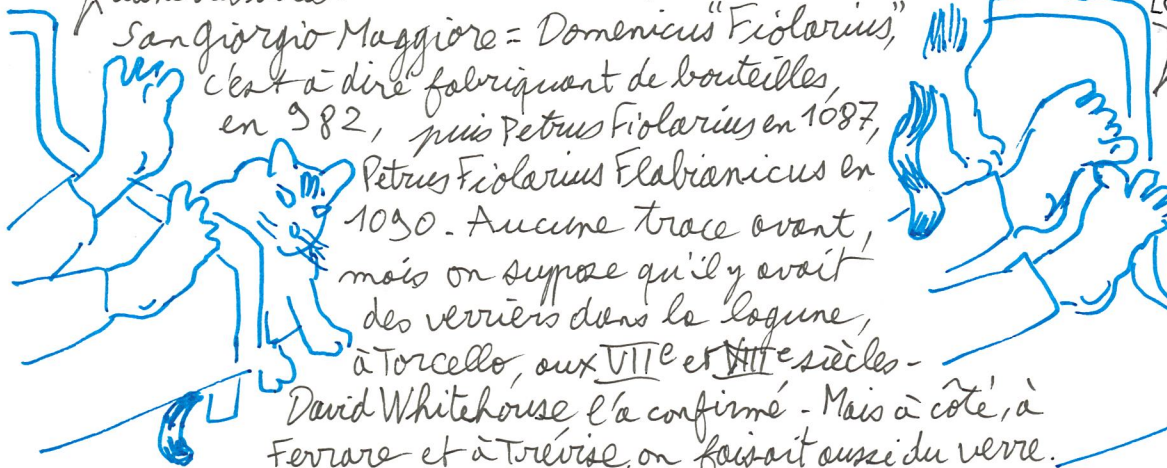 San Giorgio Maggiore = Domenicus "Fiolarius",
c'est à dire fabriquant de bouteilles,
en 982, puis Petrus Fiolarius en 1087,
Petrus Fiolarius Flabianicus en
1090 - Aucune trace avant,
mais on suppose qu'il y avait
des verriers dans la lagune,
à Torcello, aux VIIe et VIIIe siècles -
David Whitehouse l'a confirmé - Mais à côté, à
Ferrare et à Trévise, on faisait aussi du verre.